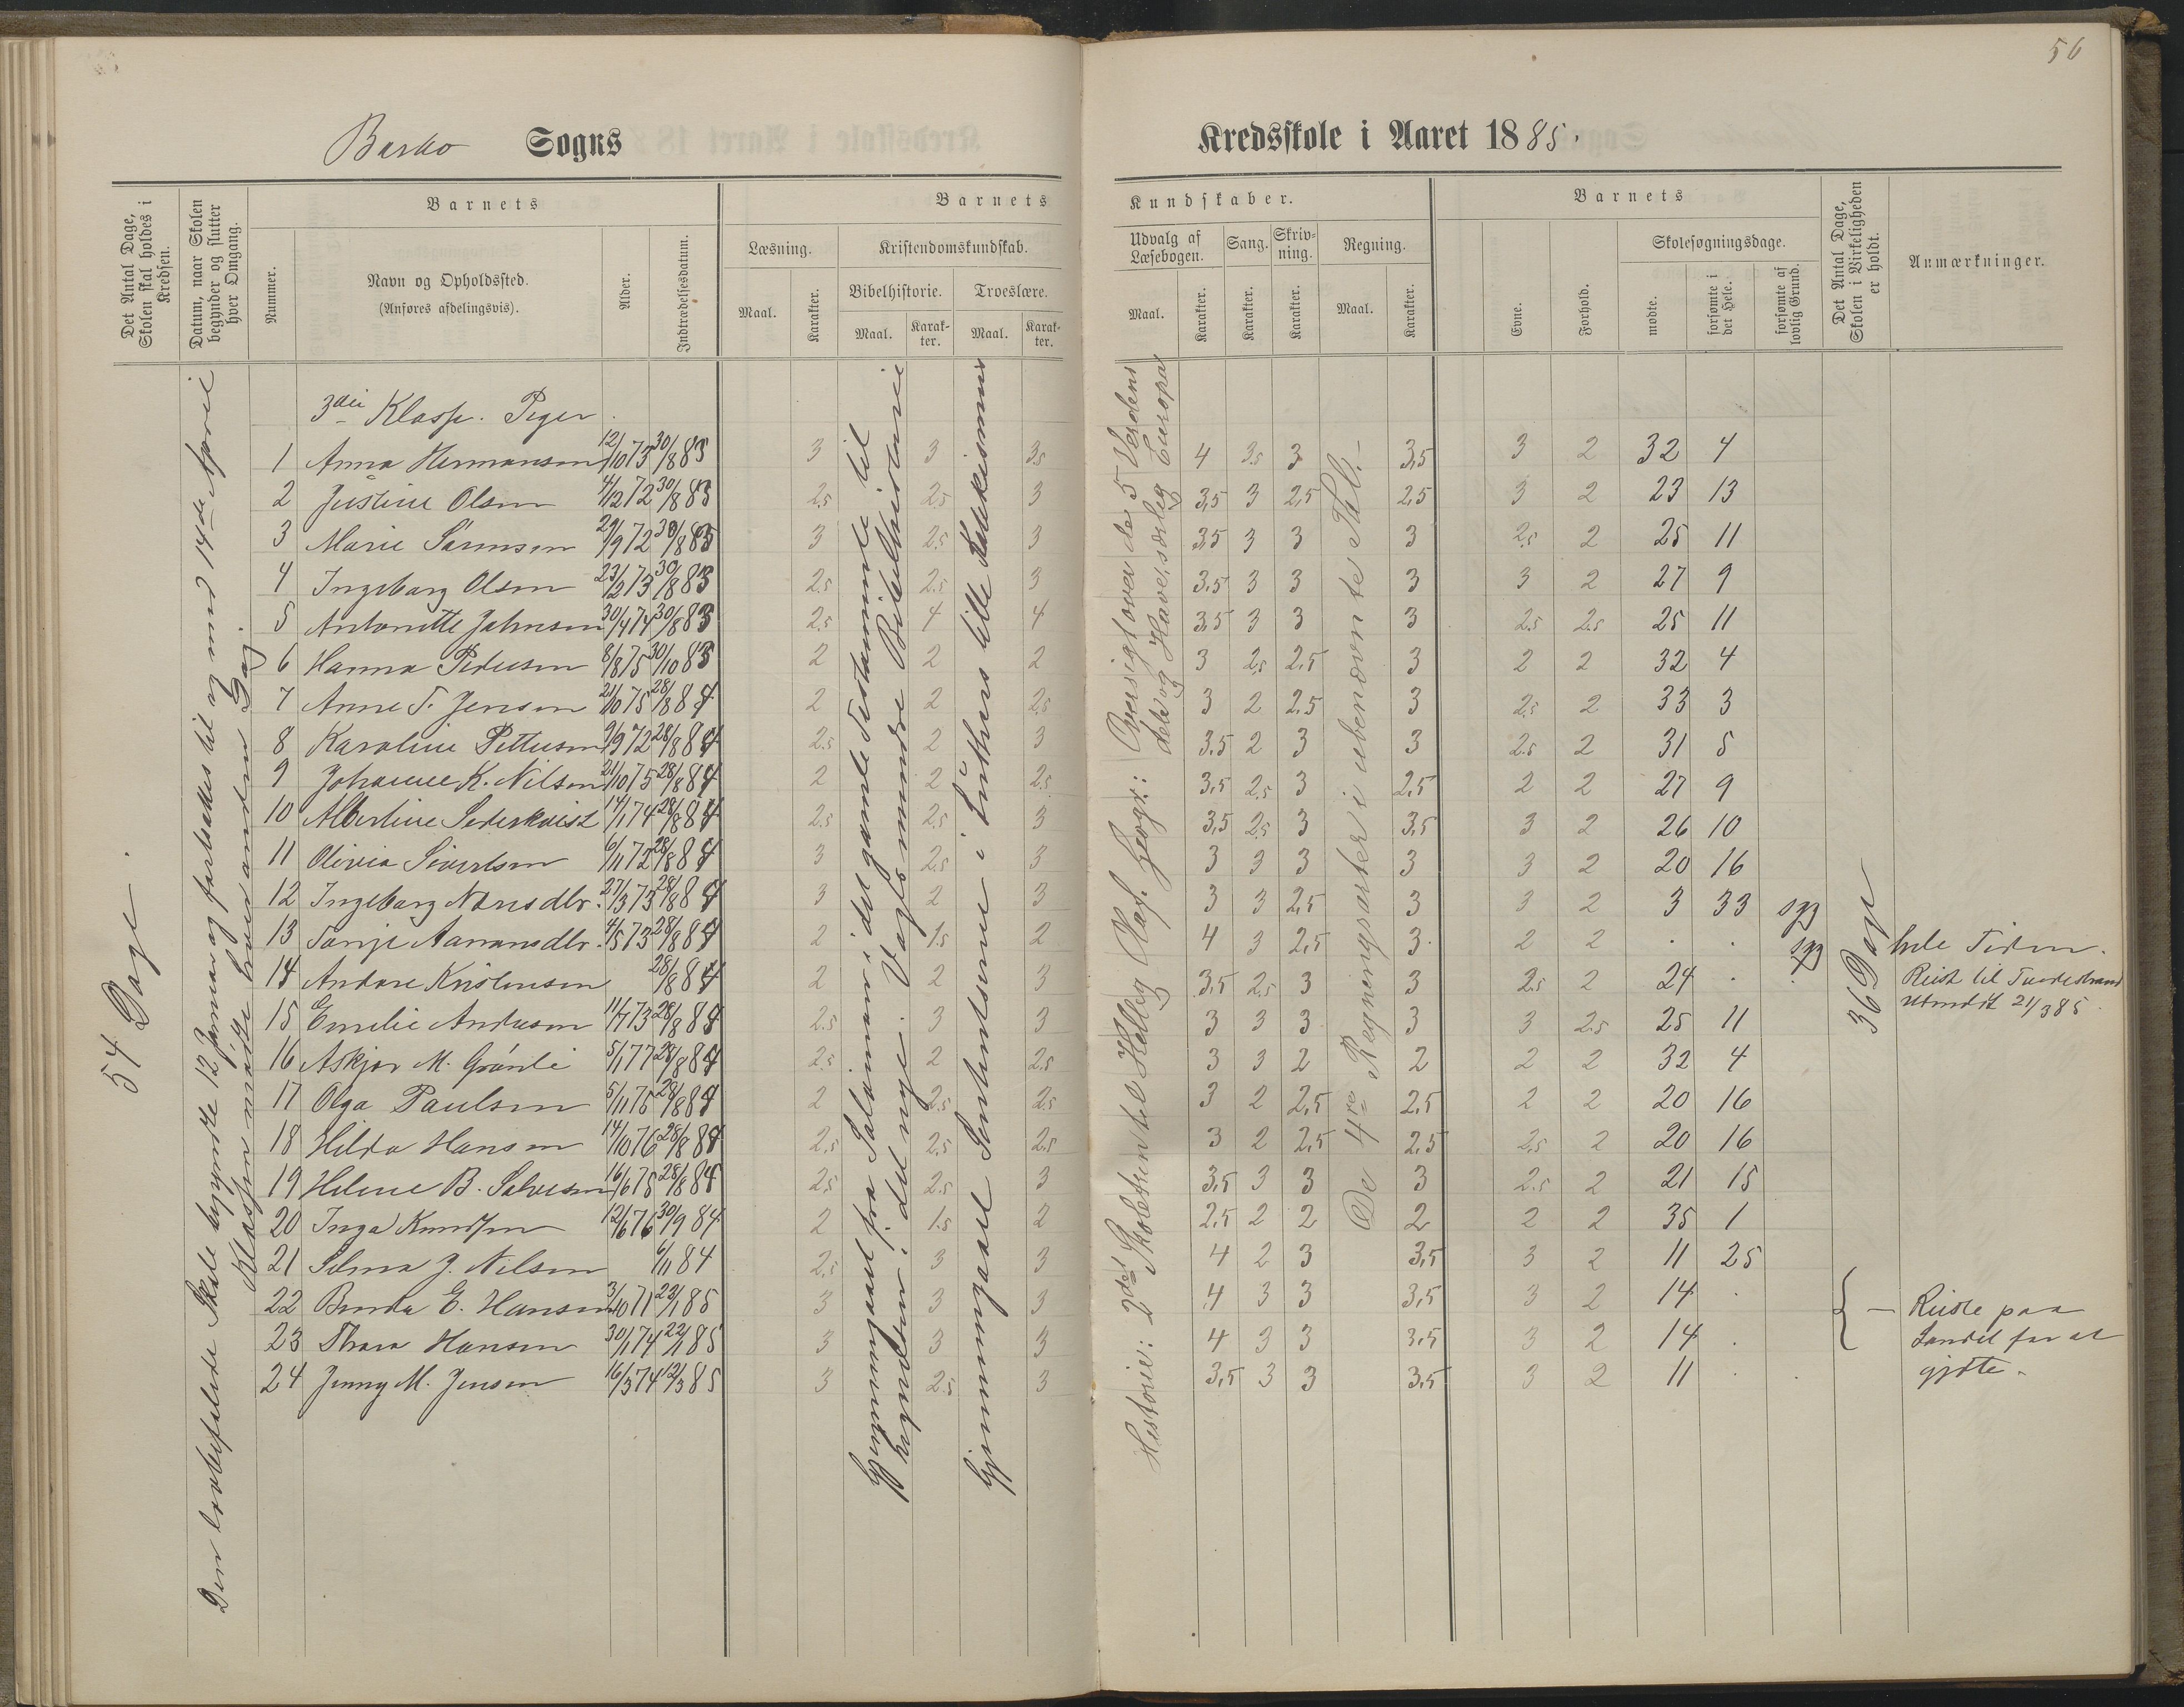 56
Barbo Sogns
Kredsskole i Aaret 1885.
Det Antal Dage, Skolen skal holdes i Kredsen.
Datum, naar Skolen begynder og slutter hver Omgang.
Barnets
Nummer.
Navn og Opholdssted.
(Anføres afdelingsvis).
Alder.
Indtrædelsesdatum.
Barnets
Læsning.
Maal.
Karakter.
Kristendomskundskab.
Bibelhistorie.
Maal.
Karakter.
Troeslære.
Maal.
Karakter.
Kundskaber.
Udvalg af Læsebogen.
Maal.
Karakter.
Sang.
Karakter.
Skrivning.
Karakter.
Regning.
Maal.
Karakter.
Barnets
Evne.
Forhold.
Skolesøgningsdage.
mødte.
forsømte i det Hele.
forsømte af lovlig Grund.
Det Antal Dage, Skolen i Virkeligheden er holdt.
Anmærkninger.
54 Dage.
Den lovbefalede Skole begyndte 12 Januar og fortsattes til og med 14de April
Klassen mødte hver anden Dag.
Gjennemgaaet fra Salomon i det gamle Testamente til
begyndelsen i det nye. Vogts mindre Bibelhistorie
Gjennemgaaet Sententserne i Luthers lille Katekismus
Historie: 2det Skoletrin til Hellig Olaf. Geogr.: Oversigt over de 5 Verdens
dele og Have, særlig Europa
De 4re Regningsarter i ubenævnte Tal.
36 Dage
3die Klasse. Piger.
1 Anna Hermansen 12/10 73 30/8 83 3 3 3.5 4 3.5 3 3,5 3 2 32 4
2 Justine Olsen 4/12 72 30/8 83 2.5 2.5 3 3,5 3 2,5 2,5 3 2 23 13
3 Marie Sørensen 29/9 72 30/8 83 3 2.5 3 3,5 3 3 3 2.5 2 25 11
4 Ingeborg Olsen 23/2 73 30/8 83 2.5 2.5 3 3,5 3 3 3 3 2 27 9
5 Antonette Johnsen 30/4 74 30/8 83 2.5 4 4 3,5 3 3 3 2.5 2.5 25 11
6 Hanna Pedersen 8/8 75 30/10 83 2 2 2 3 2.5 2.5 3 2 2 32 4
7 Anne T. Jensen 21/10 75 28/8 84 2 2 2.5 3 2 2.5 3 2.5 2 33 3
8 Karoline Pettersen 9/9 72 28/8 84 2.5 2 3 3.5 2 3 3 2.5 2 31 5
9 Johanne K. Nilsen 21/10 75 28/8 84 2 2 2.5 3,5 2.5 3 2,5 2 2 27 9
10 Albertine Sederkvist 14/1 74 28/8 84 2.5 2.5 3 3,5 2.5 3 3,5 3 2 26 10
11 Olivia Sivertsen 6/11 72 28/8 84 3 2.5 3 3 3 3 3 3 2 20 16
12 Ingeborg Narsdtr. 27/3 73 28/8 84 3 2 3 3 3 2,5 3 3 2 3 33 syg
13 Tonje Aanansdtr. 4/5 73 28/8 84 2 1.5 2 4 3 2,5 3 2 2 . . syg hele Tiden.
14 Andore Kristensen 28/8 84 2 2 3 3,5 2.5 3 3 2.5 2 24 . . Reist til Tvedestrand
Utmeldt 21/3 85.
15 Emilie Andresen 11/7 73 28/8 84 2.5 3 3 3 3 3 3 3 2.5 25 11
16 Askjør M. Grønli 5/1 77 28/8 84 2.5 2 2.5 3 3 2 2 2 2 32 4
17 Olga Paulsen 5/11 75 28/8 84 2 2.5 2.5 3 2 2,5 2,5 2 2 20 16
18 Hilda Hansen 14/10 76 28/8 84 2.5 2.5 2.5 3 2 2,5 2,5 2.5 2 20 16
19 Helene B. Salvesen 16/6 75 28/8 84 2.5 2.5 3 3,5 3 3 3 2.5 2 21 15
20 Inga Knudsen 12/6 76 30/9 84 2 1.5 2 2,5 2 2 2 2 2 35 1
21 Selma J. Nilsen 6/11 84 2.5 3 3 4 2 3 3,5 3 2 11 25
22 Berda E. Hansen 3/10 71 22/1 85 3 3 3 4 3 3 3,5 3 2 14 . Reiste paa
23 Thora Hansen 30/1 74 22/1 85 3 3 3 4 3 3 3,5 3 2 14 . Landet for at
24 Jenny M. Jensen 16/3 74 12/3 85 3 2.5 3 3,5 3 3 3,5 3 2 11 . . gjæte.